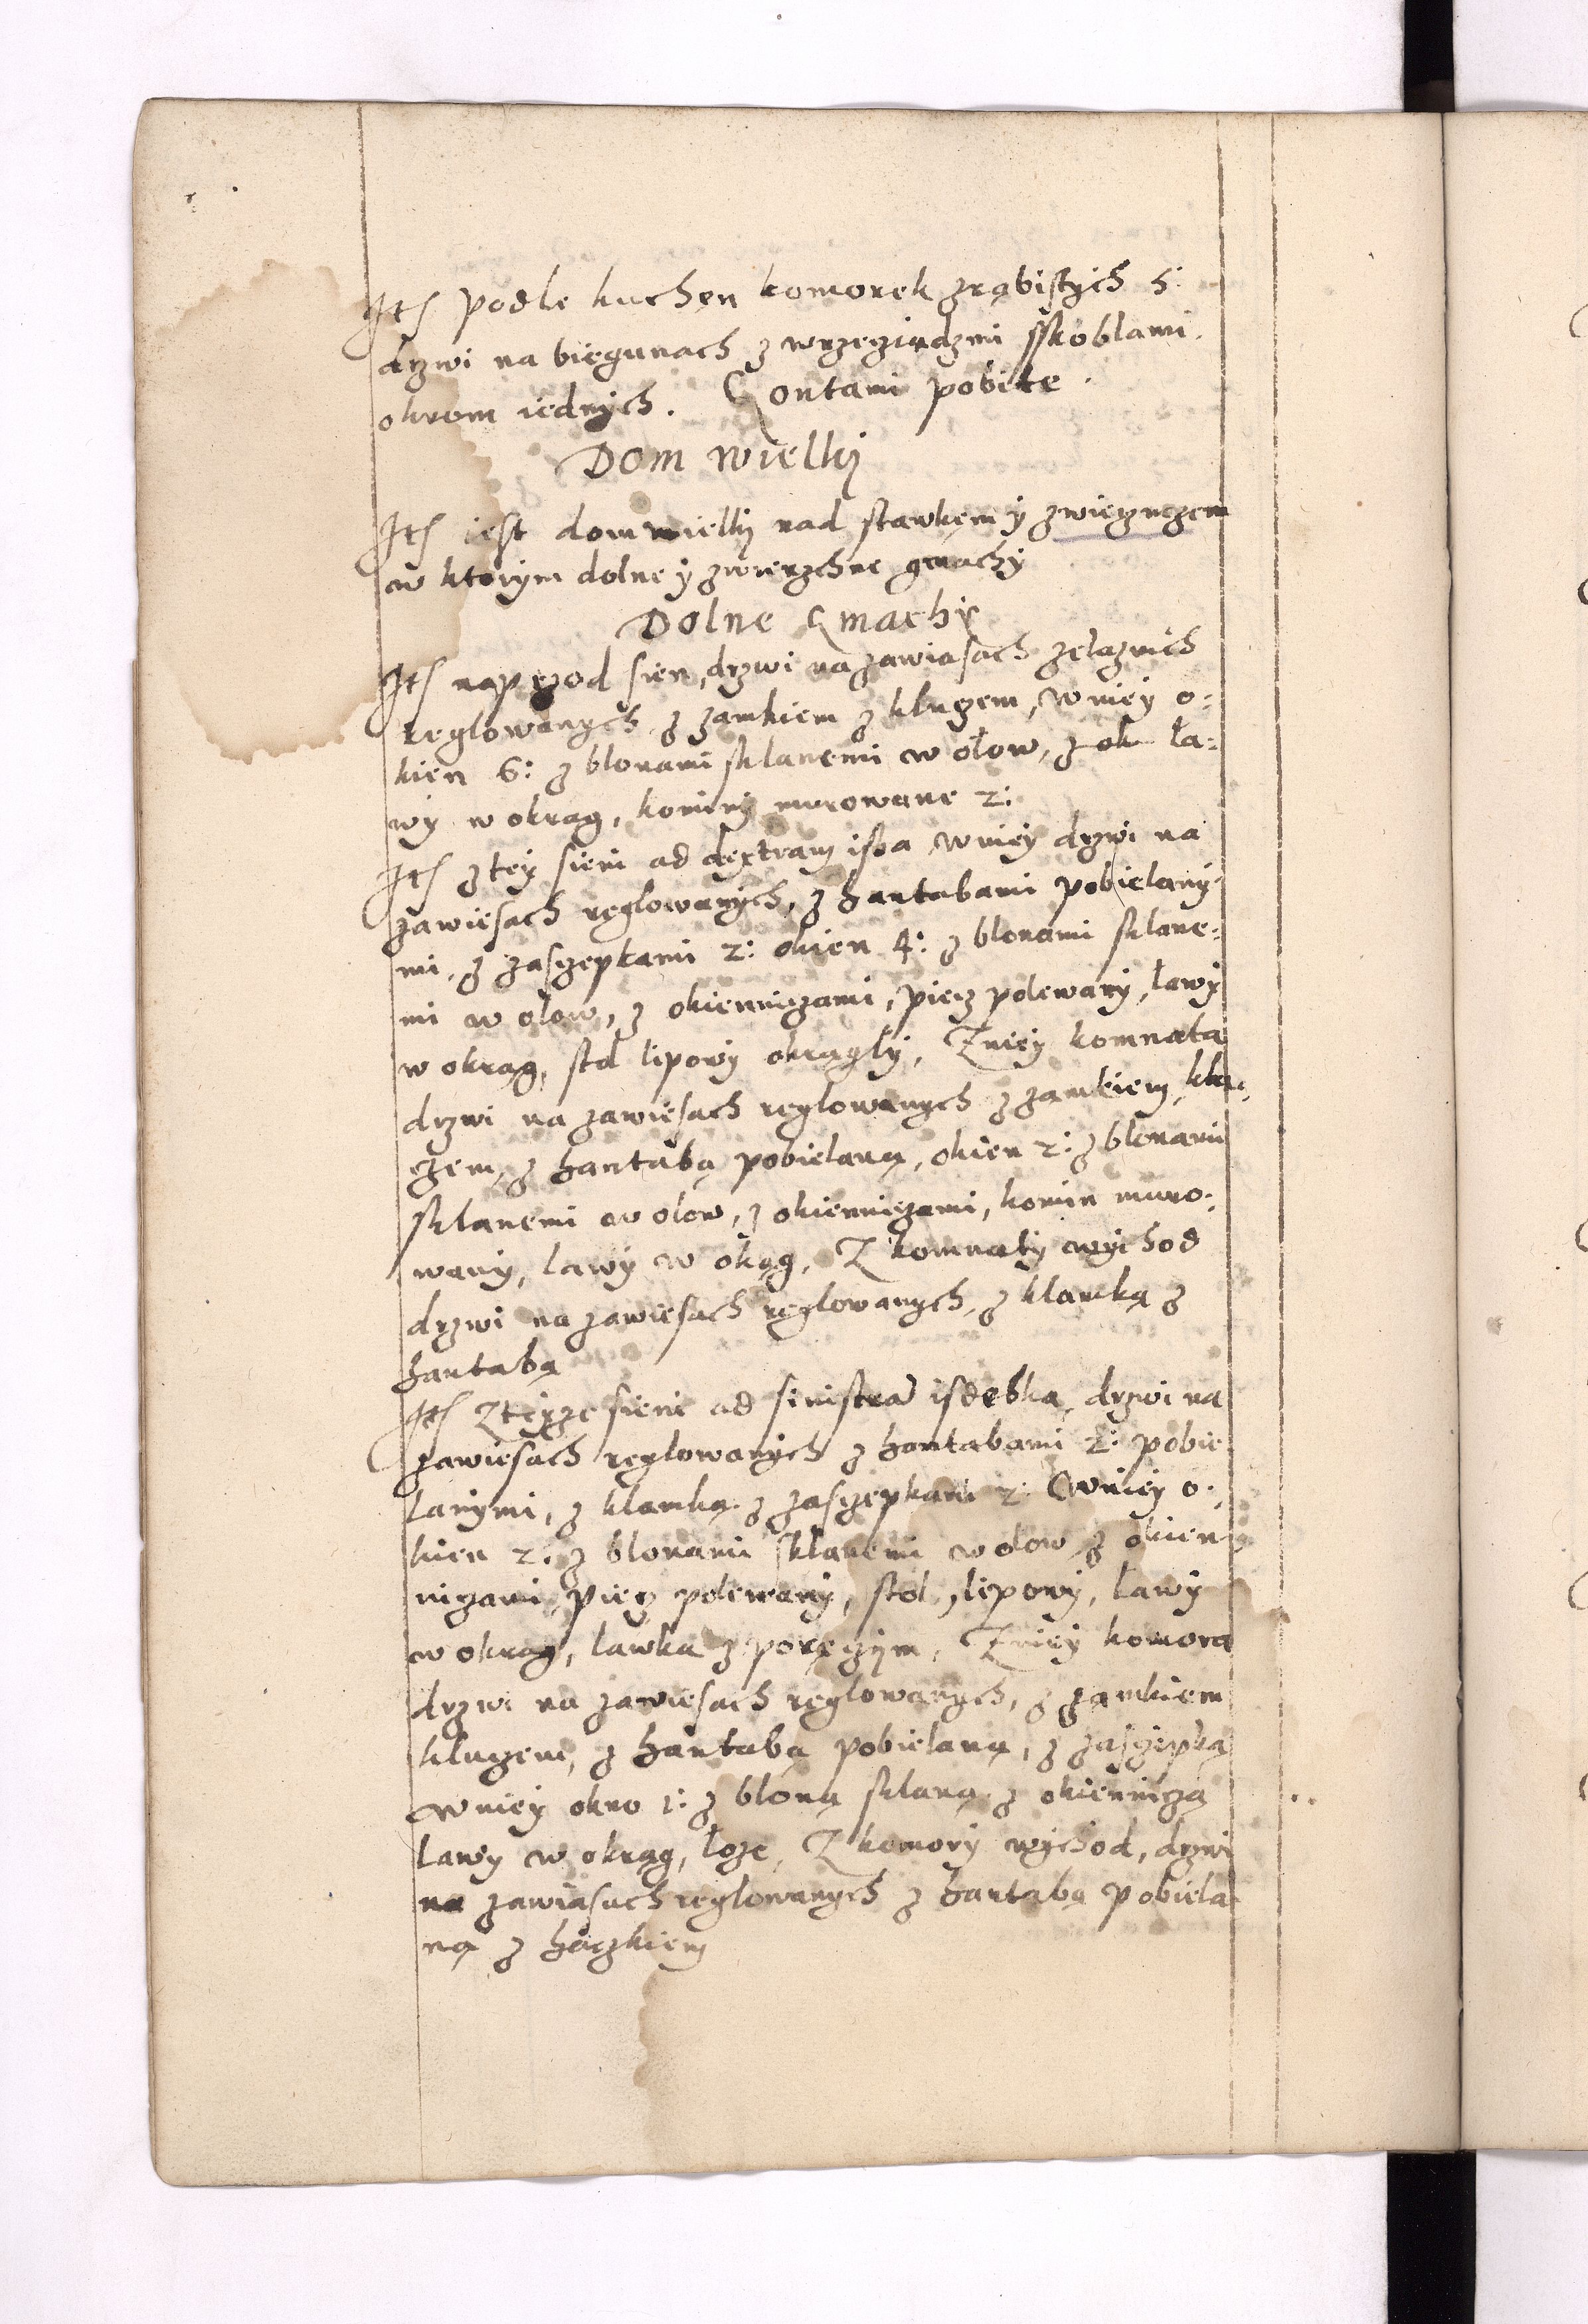 Ite podle kuchen komorek zrąbistych 5:
drzwi na biegunach z wrzeciądzmi sskoblami.
okrom iednych. Gontami pobite.
Dom wielky
Ite iest dom wielky nad stawkiem y zwierzyczem
w ktorym dolne y zwierzchne gmachy
Dolne Gmachy
Ite naprzod sien, drzwi na zawiasach zelaznich
reglowanych z zamkiem z kluczem, w niey o:
kien 6: z blonami sklanemi w olow, z ok ła:
wy w okrąg, kominy murowane 2:
Ite z tey sieni ad dextram isba w niey drzwi na
zawiesach reglowanych, z hantabami pobielany:
mi, z zasczepkami 2: okien 4: z blonami sklane:
mi w olow, z okiennicami, piecz polewany, ławy
w okrąg, stol lipowy okrągły, Z niey komnata
drzwi na zawiesach reglowanych z zamkiem, klu:
czem, z hantabą pobielaną, okien 2: z blonami
sklanemi w olow, z okiennicami, komin muro:
wany, lawy w okąg, Z komnaty wychod
drzwi na zawiesach reglowanych, z klamką z
hantabą
Ite Z teyze sieni ad sinistra isdebka, drzwi na
zawiesach reglowanych z hantabami 2: pobie
lanymi, z klamką z zasczepkami 2: w niey o:
kien 2: z blonami sklanemi w olow z okien
nicami, piecz polewany, stol, lipowy, ławy
w okrąg, lawka z poręczym, Z niey komora
drzwi na zawiesach reglowanych, z zamkiem
kluczem, z hantabą pobielaną, z zasczepką
w niey okno 1: z bloną sklaną z okiennicą
lawy w okrąg, loze, Z komory wychod, drzwi
na zawiasach reglowanych z hantabą pobiela
ną z haczkiem